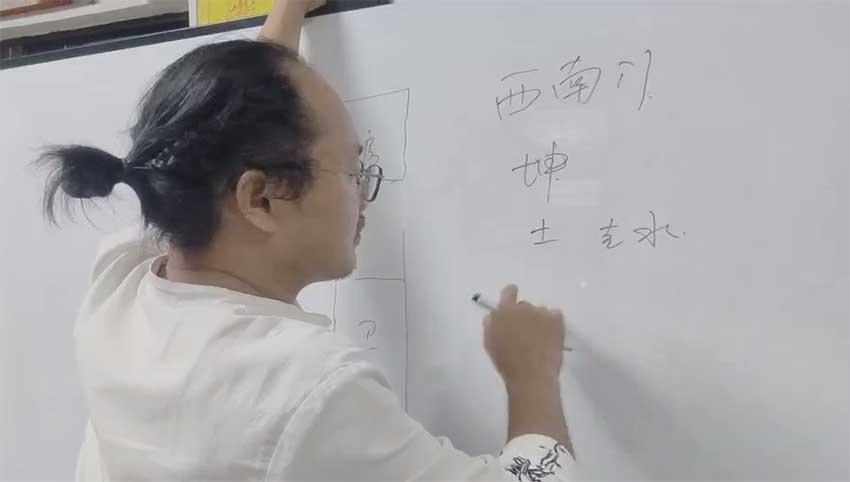 西南门
坤
土 克水
房
卫